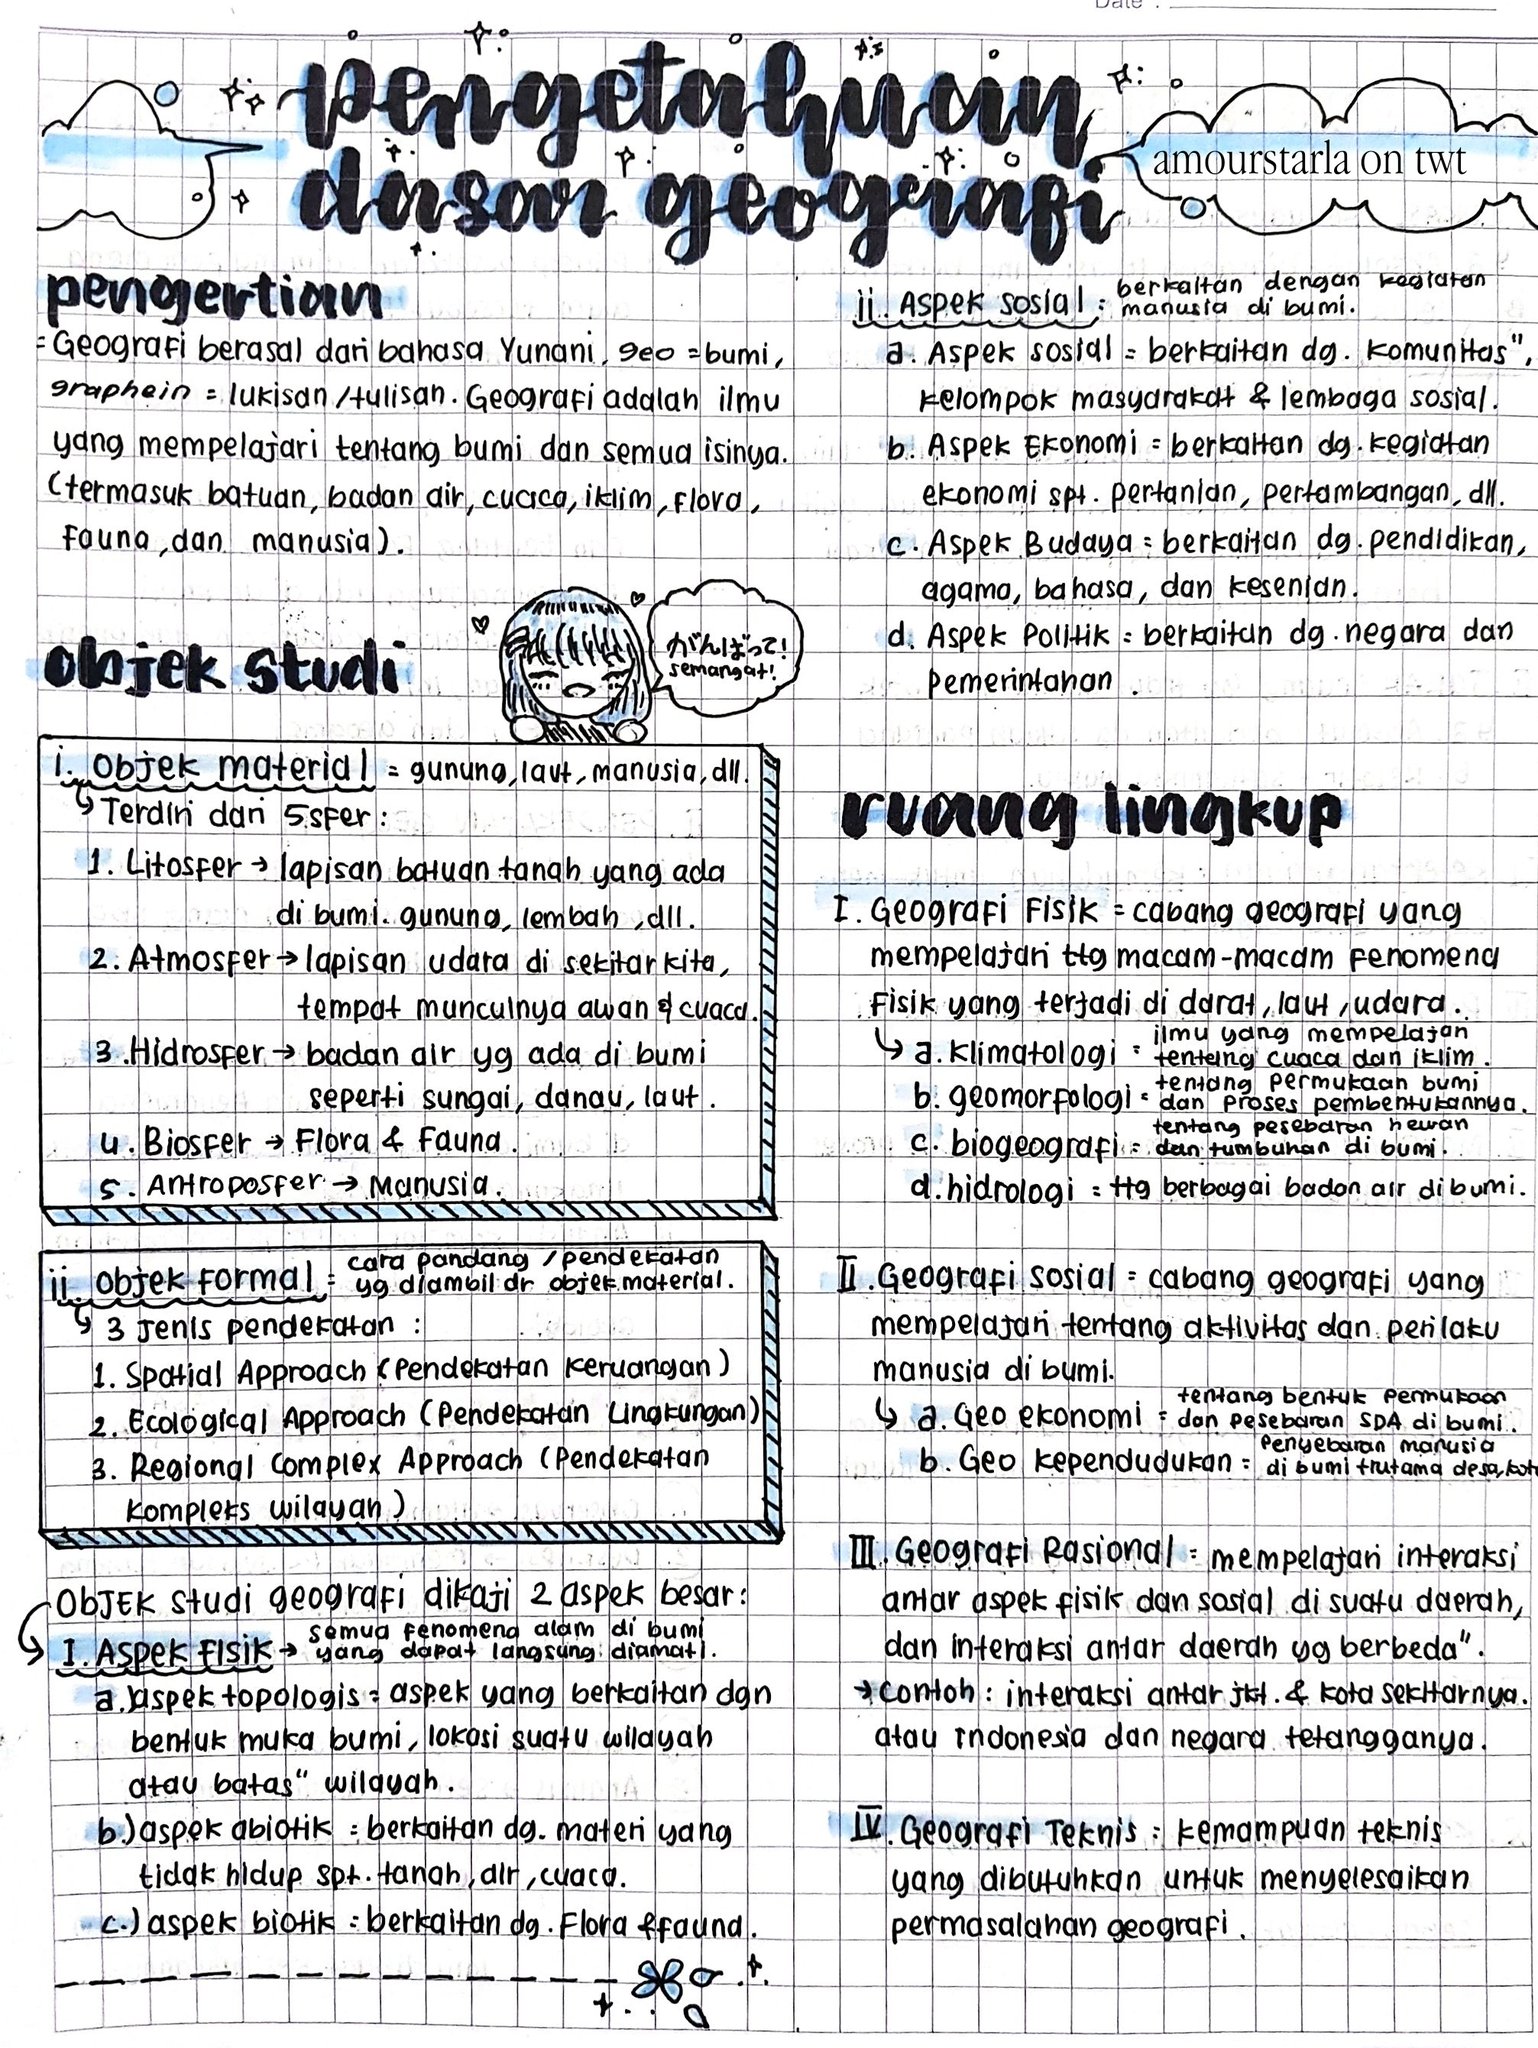 Date :
pengetahuan
dasar geografi
amourstarla on twt
pengertian
= Geografi berasal dari bahasa Yunani, geo = bumi,
graphein = lukisan/tulisan. Geografi adalah ilmu
yang mempelajari tentang bumi dan semua isinya.
(termasuk batuan, badan air, cuaca, iklim, flora,
fauna, dan manusia).
objek studi
がんばって!
semangat!
i. Objek material = gunung, laut, manusia, dll.
↳ Terdiri dari 5 sfer:
1. Litosfer → lapisan batuan tanah yang ada
di bumi. gunung, lembah, dll.
2. Atmosfer → lapisan udara di sekitar kita,
tempat munculnya awan & cuaca.
3. Hidrosfer → badan air yg ada di bumi
seperti sungai, danau, laut.
4. Biosfer → Flora & Fauna.
5. Antroposfer → Manusia.
ii. Objek formal = cara pandang / pendekatan
yg diambil dr objek material.
↳ 3 jenis pendekatan :
1. Spatial Approach (Pendekatan Keruangan)
2. Ecological Approach (Pendekatan Lingkungan)
3. Regional Complex Approach (Pendekatan
Kompleks wilayah)
Objek studi geografi dikaji 2 aspek besar:
I. Aspek Fisik → semua fenomena alam di bumi
yang dapat langsung diamati.
a.) aspek topologis = aspek yang berkaitan dgn
bentuk muka bumi, lokasi suatu wilayah
atau batas" wilayah.
b.) aspek abiotik = berkaitan dg. materi yang
tidak hidup spt. tanah, air, cuaca.
c.) aspek biotik = berkaitan dg. Flora & fauna.
ii. Aspek sosial = berkaitan dengan kegiatan
manusia di bumi.
a. Aspek sosial = berkaitan dg. komunitas",
kelompok masyarakat & lembaga sosial.
b. Aspek Ekonomi = berkaitan dg. kegiatan
ekonomi spt. pertanian, pertambangan, dll.
c. Aspek Budaya = berkaitan dg. pendidikan,
agama, bahasa, dan kesenian.
d. Aspek Politik = berkaitan dg. negara dan
pemerintahan.
ruang lingkup
I. Geografi Fisik = cabang geografi yang
mempelajari ttg macam-macam fenomena
fisik yang terjadi di darat, laut, udara.
↳ a. klimatologi = ilmu yang mempelajari
tentang cuaca dan iklim.
b. geomorfologi = tentang permukaan bumi
dan proses pembentukannya.
c. biogeografi = tentang pesebaran hewan
dan tumbuhan di bumi.
d. hidrologi = ttg berbagai badan air di bumi.
II. Geografi sosial = cabang geografi yang
mempelajari tentang aktivitas dan perilaku
manusia di bumi.
↳ a. Geo ekonomi = tentang bentuk permukaan
dan pesebaran SDA di bumi.
b. Geo kependudukan = Penyebaran manusia
di bumi trutama desa, kota
III. Geografi Rasional = mempelajari interaksi
antar aspek fisik dan sosial di suatu daerah,
dan interaksi antar daerah yg berbeda".
→ contoh : interaksi antar jkt. & kota sekitarnya.
atau Indonesia dan negara tetangganya.
IV. Geografi Teknis = kemampuan teknis
yang dibutuhkan untuk menyelesaikan
permasalahan geografi.